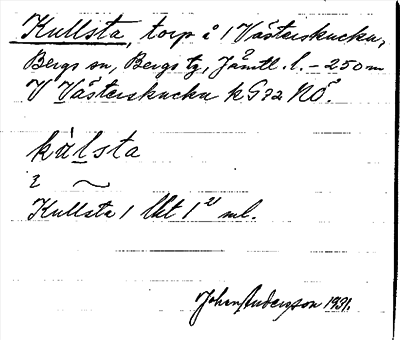 Kullsta, torp å 1 Västerskucku,
Bergs sn, Bergs tg, Jämtl. l. – 250 m
V Västerskucku kG32 NÖ.
kùlsta
Kullsta 1 lkt 1 21 ml.
Johan Andersson 1931.